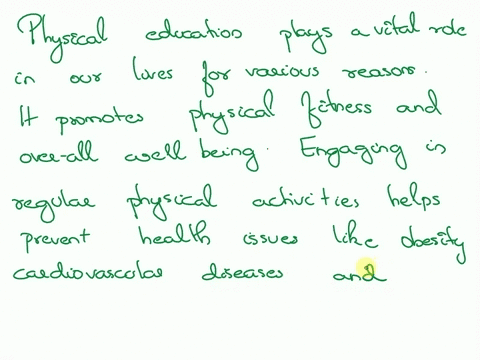 Physical education plays a vital role
in our lives for various reasons.
It promotes physical fitness and
over-all well being. Engaging in
regular physical activities helps
prevent health issues like obesity
cardiovascular diseases and